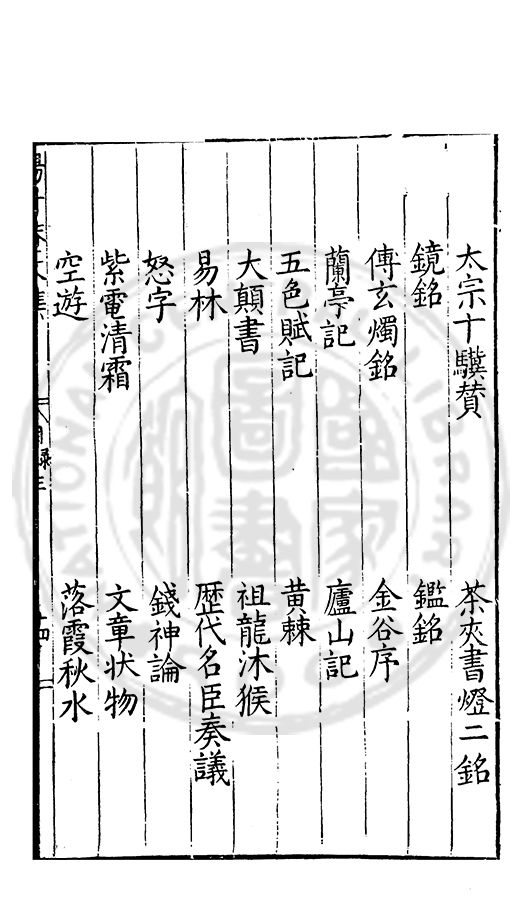 太宗十驥贊 茶夾書燈二銘
鏡銘 鑑銘
傳玄燭銘 金谷序
蘭亭記 廬山記
五色賦記 黄棘
大顛書 祖龍沐猴
易林 歴代名臣奏議
怒字 錢神論
紫電清霜 文章狀物
空遊 落霞秋水